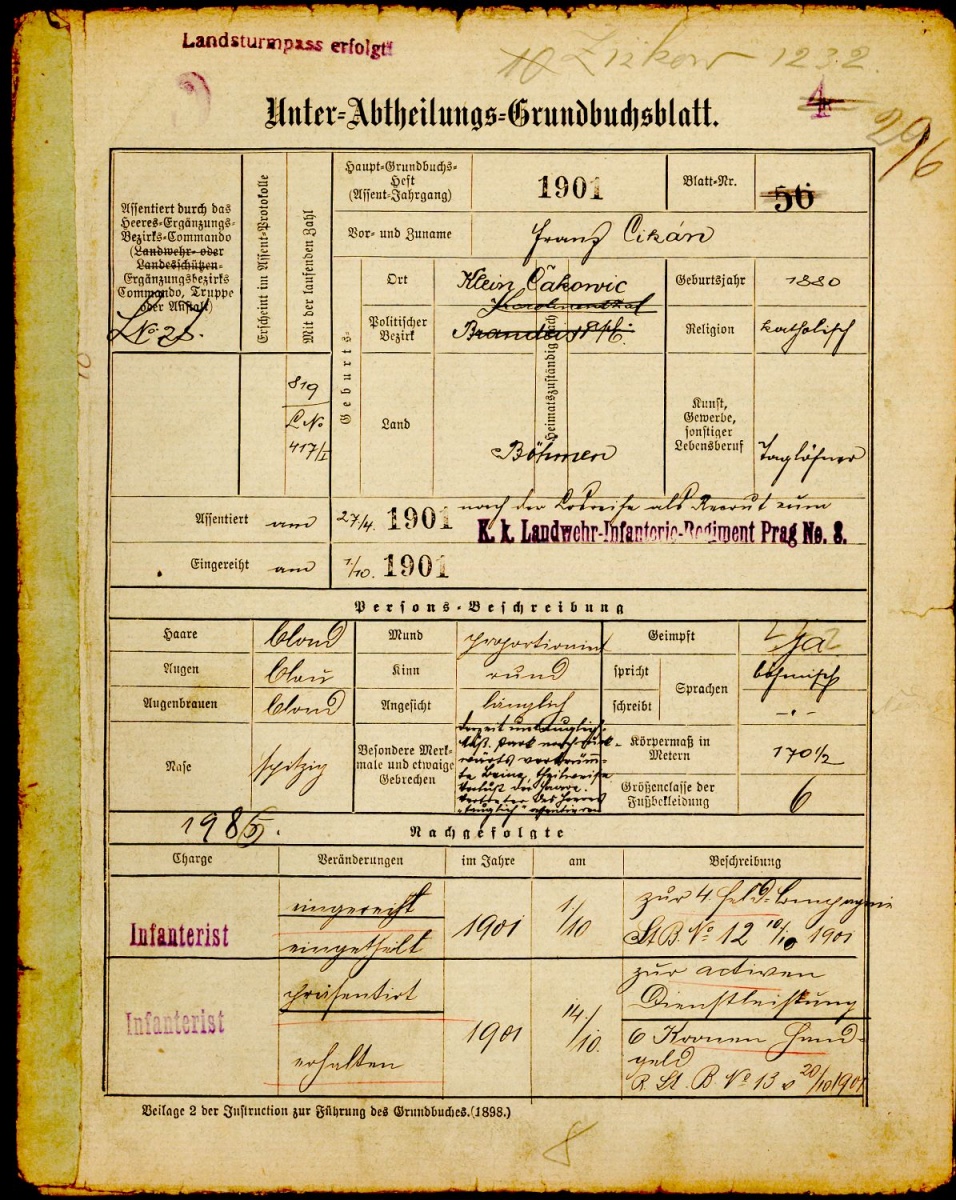 Landsturmpass erfolgt
Žizkow 1232.
4
Unter-Abtheilungs-Grundbuchsblatt.
29/6
Assentiert durch das
Heeres-Ergänzungs-
Bezirks-Commando
(Landwehr- oder
Landesschützen-
Ergänzungsbezirks
Commando, Truppe
oder Anstalt)
No. 28.
Erscheint im Assent-Protokolle
Mit der laufenden Zahl
819
417/I
Haupt-Grundbuchs-
Heft
(Assent-Jahrgang)
1901
Blatt-Nr.
56
Vor- und Zuname
Franz Cikán
Geburts-
Ort
Klein Čakowic
Karolinenthal
Politischer
Bezirk
Brandeis a/E.
Land
Böhmen
Heimatszuständig nach
Geburtsjahr
1880
Religion
katholisch
Kunst,
Gewerbe,
sonstiger
Lebensberuf
Taglöhner
Assentiert am 27/4. 1901 nach der Losreihe als Recrut zum
K. k. Landwehr-Infanterie-Regiment Prag No. 8.
Eingereiht am 1/10. 1901
Persons-Beschreibung
Haare blond
Augen blau
Augenbrauen blond
Nase spitzig
Mund proportionirt
Kinn rund
Angesicht länglich
Besondere Merk-
male und etwaige
Gebrechen
derzeit untauglich
stark nach rück-
wärts verkrüm-
te Beine, theilweise
Verlust der Haare.
Vertreter des Heeres
"tauglich" assentieren
Geimpft ja
spricht
schreibt
Sprachen
böhmisch
- . -
Körpermaß in
Metern
170 1/2
Größenclasse der
Fußbekleidung
6
1985.
Nachgefolgte
Charge Veränderungen im Jahre am Beschreibung
Infanterist
eingereiht
eingetheilt
1901
1/10
zur 4 Feld-Compagnie
St.B. No 12 10/10 1901
Infanterist
präsentirt
erhalten
1901
14./10.
zur activen
Dienstleistung
6 Kronen Hand-
geld
R. St. B. No 13 v 20/10 1901
Beilage 2 der Instruction zur Führung des Grundbuches. (1898.)
8